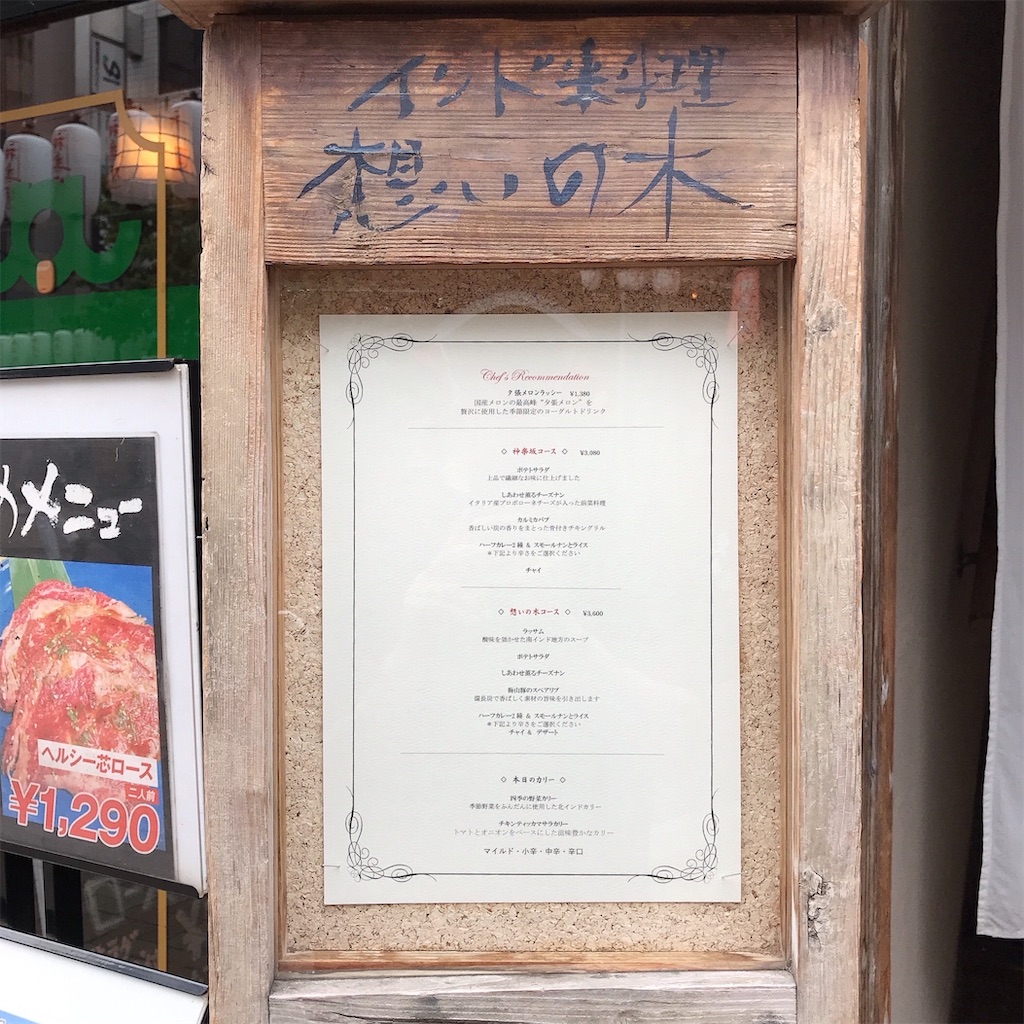 インド料理
想いの木
Chef's Recommendation
夕張メロンラッシー ¥1,380
国産メロンの最高峰“夕張メロン”を
贅沢に使用した季節限定のヨーグルトドリンク
◇ 神楽坂コース ◇ ¥3,080
ポテトサラダ
上品で繊細なお味に仕上げました
しあわせ薫るチーズナン
イタリア産プロボローネチーズが入った前菜料理
カルミカバブ
香ばしい炭の香りをまとった骨付きチキングリル
ハーフカレー2種 & スモールナンとライス
*下記より辛さをご選択ください
チャイ
◇ 想いの木コース ◇ ¥3,600
ラッサム
酸味を効かせた南インド地方のスープ
ポテトサラダ
しあわせ薫るチーズナン
梅山豚のスペアリブ
備長炭で香ばしく素材の旨味を引き出します
ハーフカレー2種 & スモールナンとライス
*下記より辛さをご選択ください
チャイ & デザート
◇ 本日のカリー ◇
四季の野菜カリー
季節野菜をふんだんに使用した北インドカリー
チキンティッカマサラカリー
トマトとオニオンをベースにした滋味豊かなカリー
マイルド・小辛・中辛・辛口
メニュー
ヘルシー芯ロース
二人前
¥1,290